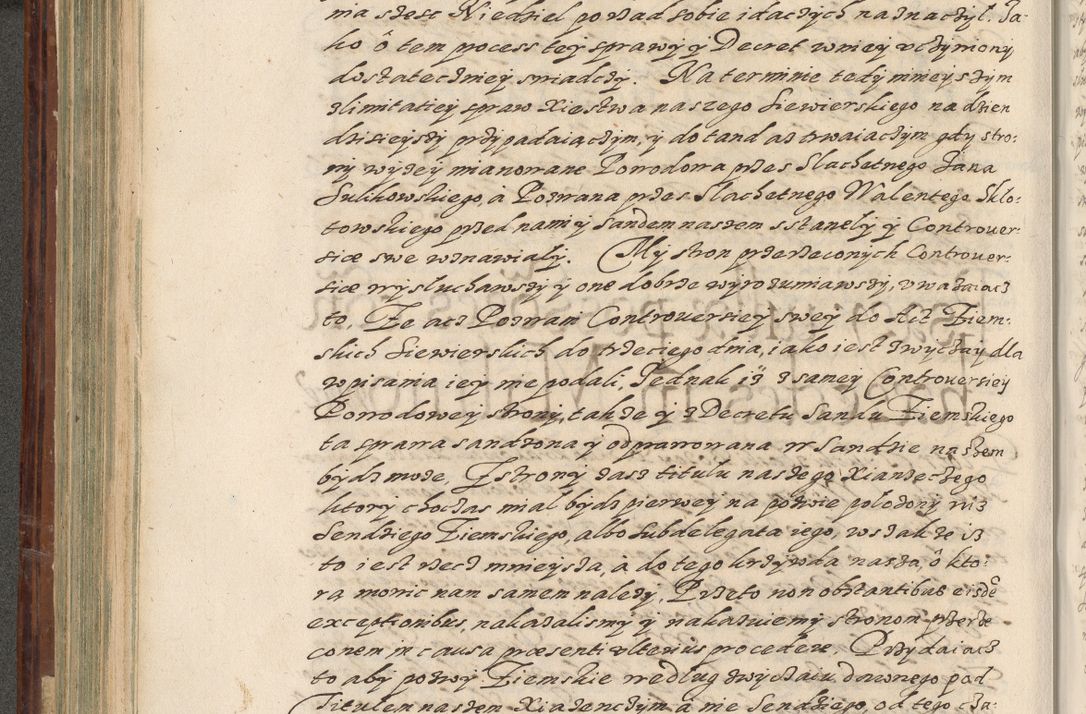 nia szesc Niedziel po Sad sobie idaczych naznaczył. Ja-
ko ô tem process tey sprawy y Decret wniey vczyniony
dostateczniey swiadczy. Na terminie tedy mnieyszym
zlimitatiey spraw Xiestwa naszego Siewierskiego na dzien
dzisieyszy przypadaiączym, y dotand as trwaiaczym gdy stro-
ny wyzey mianowane Powodowa przes Slachetnego Jana
Sulikowskiego, á Pozwana przes Slachetnego Walentego Sklo-
towskiego przed nami y Sandem naszem sstanely y Controuer-
sice swe wznawialy. My stron przerzeconych Controuer-
sice wysluchawszy y one dobrze wyrozumiawszy, vwazaiacz
to, Ze acz Pozwani Controuersiey swey do Act Ziem-
skich Siewierskich do trzeciego dnia, iako iest zwyczay dla
wpisania iey nie podali, Jednak iż z samey Controuersiey
Powodowey strony, takze y z Decretu Sandu Ziemskiego
ta sprawa sandzona y odprawowana w Sandzie naszem
bydz moze, Zstrony zasz titulu naszego Xiandzeczego
ktory choczas mial bydz pierwey na pozwie polozony niz
Sendziego Ziemskiego, albo Subdelegata iego, wszakze iz
to iest rzecz mnieysza, á do tego krzywda nasza, ô kto-
ra mowic nam samem nalezy, Przeto non obstantibus eisdē
exceptionibus, nakazalismy y nakazuiemy stronom przerze
conem in causa præsenti vlterius procedere. Przydaiacz
to aby pozwy Ziemskie według zwyczaiu dawnego pod
Titulem naszem Xiazenczym a nie Sendziego, od tego cza-